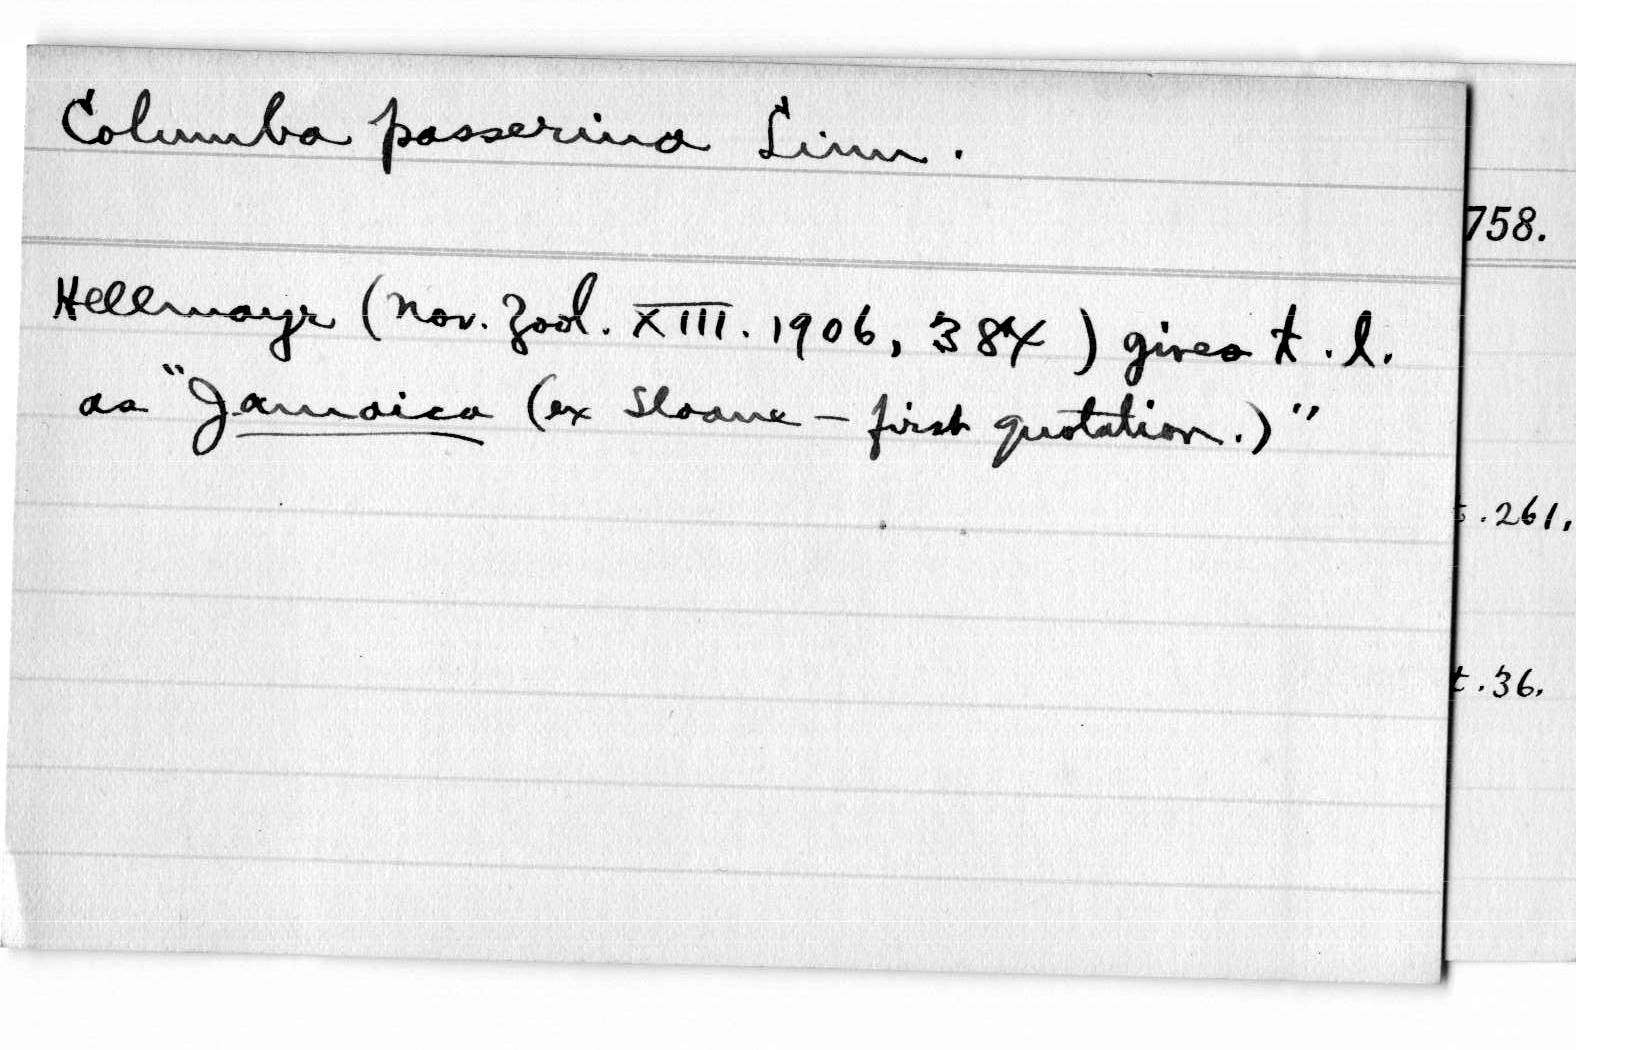 Columba passerina Linn.
758.
Hellmayr (Nov. Zool. XIII. 1906, 384) gives t.l.
as "Jamaica (ex Sloane – first quotation.)"
t.261,
t.36.